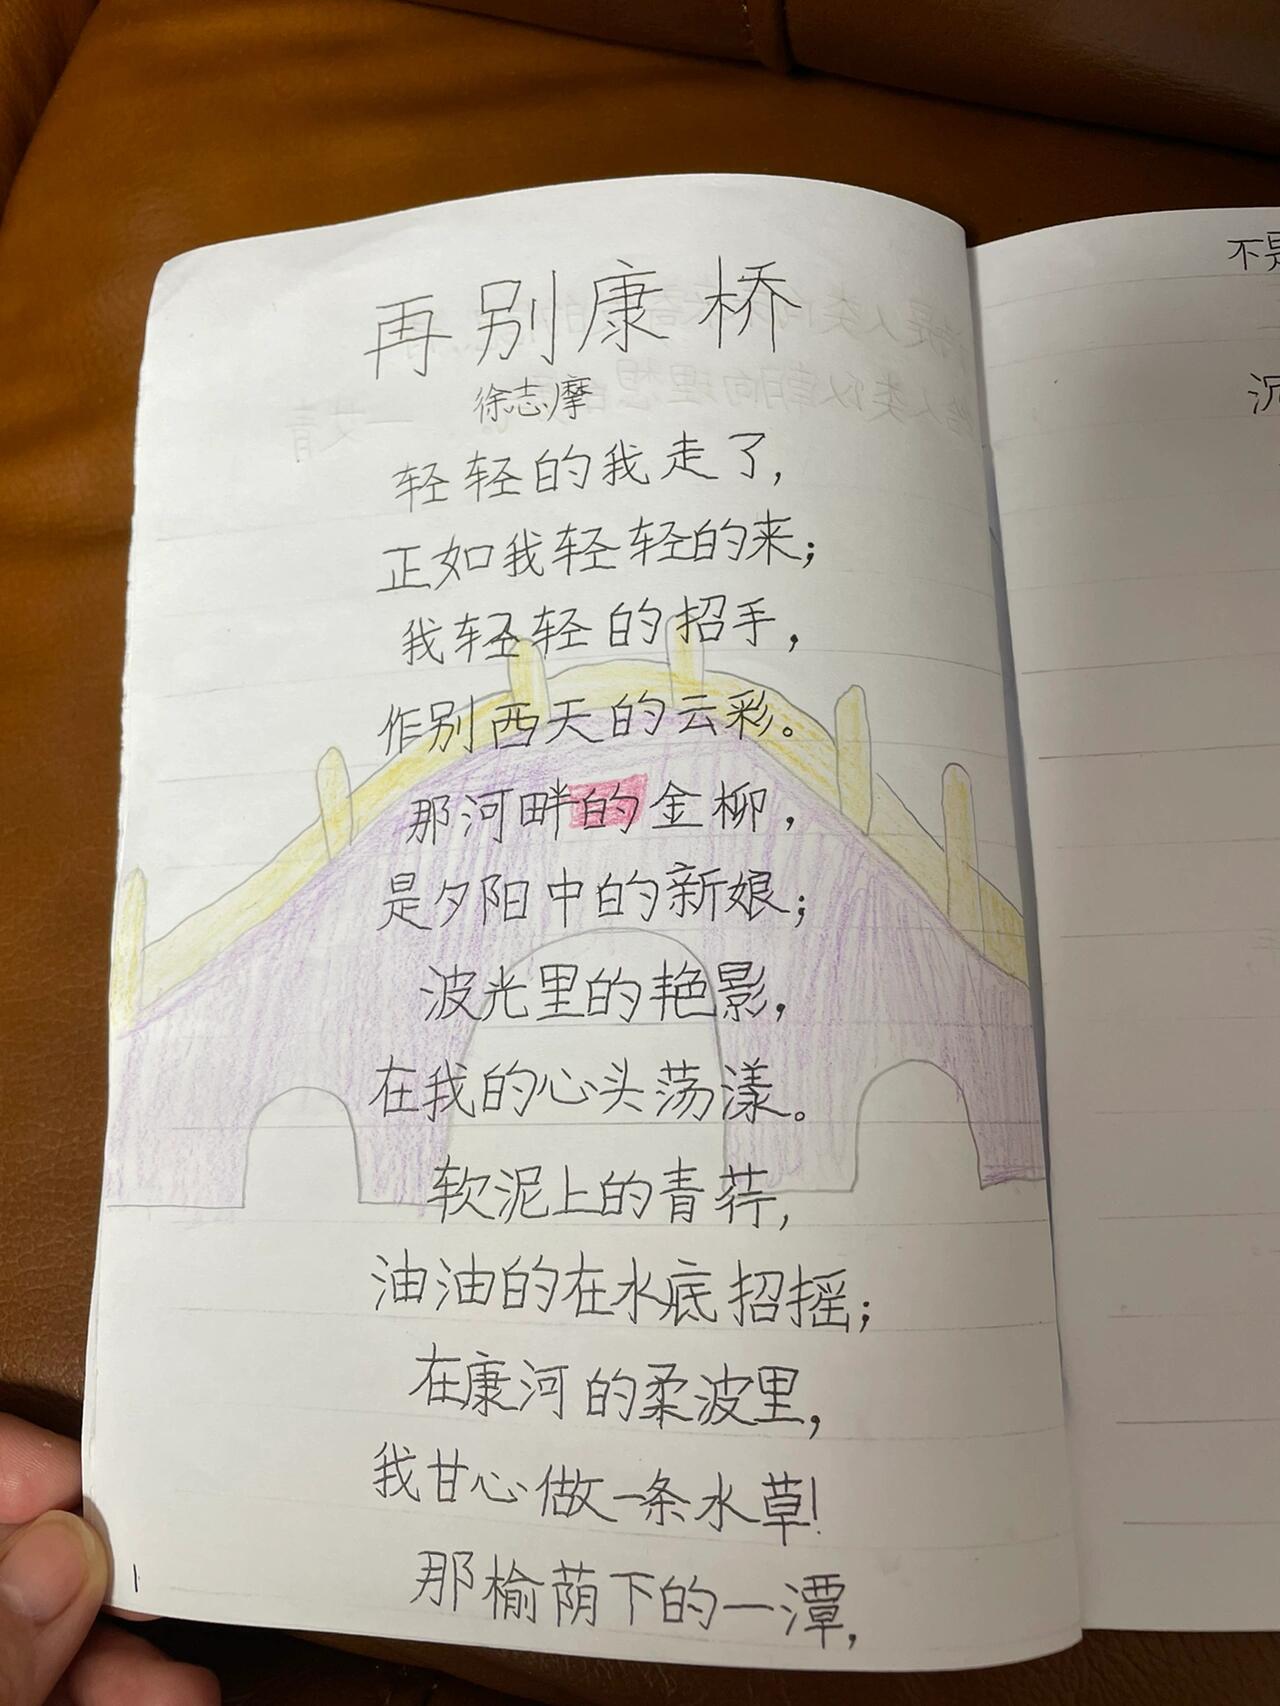 再别康桥
徐志摩
轻轻的我走了,
正如我轻轻的来;
我轻轻的招手,
作别西天的云彩。
那河畔的金柳,
是夕阳中的新娘;
波光里的艳影,
在我的心头荡漾。
软泥上的青荇,
油油的在水底招摇;
在康河的柔波里,
我甘心做一条水草!
那榆荫下的一潭,
1
不是
沉